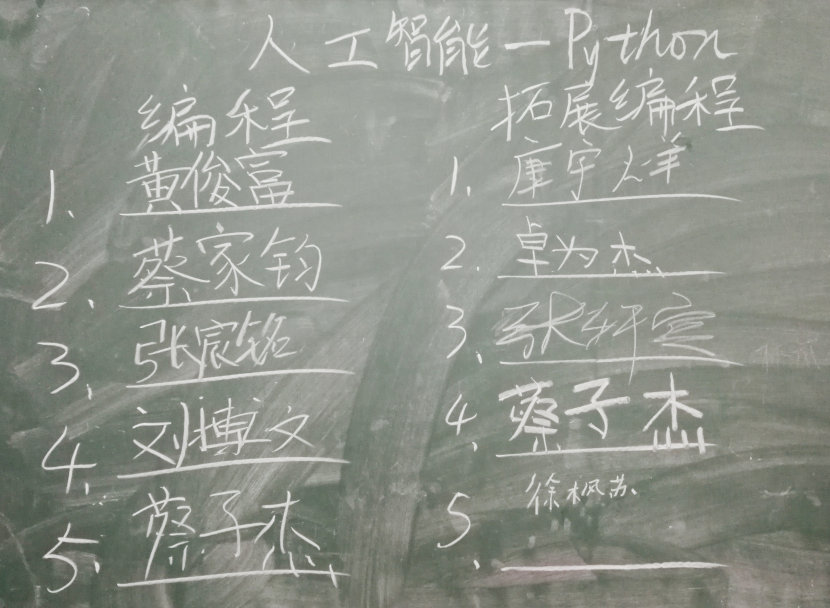 人工智能—Python
编程
1. 黄俊富
2. 蔡家钧
3. 张宸铭
4. 刘博文
5. 蔡子杰
拓展编程
1. 康宇祥
2. 卓为杰
3. 张轩宣
4. 蔡子杰
5. 徐枫苏